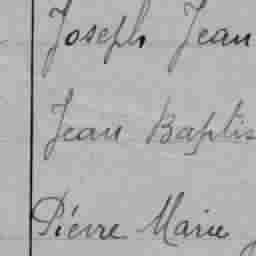 Joseph Jean
Jean Baptis
Piérre Marie